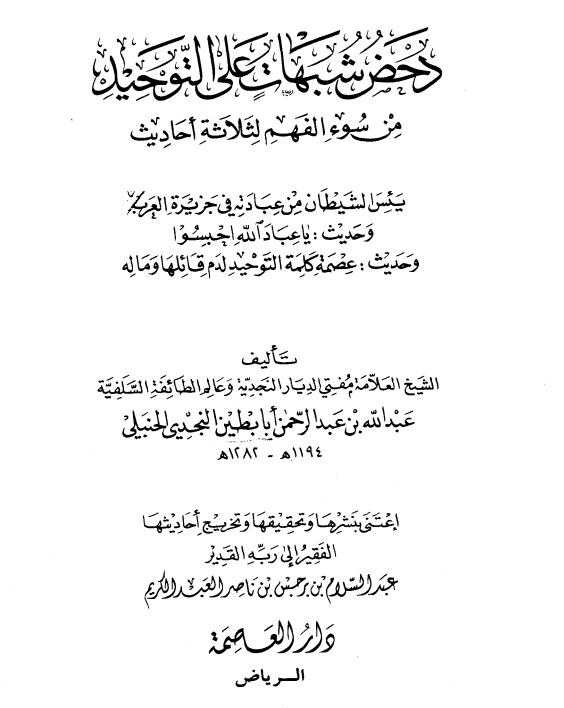 دَحْضُ شُبُهَاتٍ عَلَى التَّوْحِيدِ
مِنْ سُوْءِ الفَهْمِ لِثَلَاثَةِ أَحَادِيثَ
يَئِسَ الشَيطَان مِنْ عِبَادَتِهِ فِي جَزِيرَةِ العَرَب
وَحَدِيث : يَا عِبَادَ اللهِ احْبِسُوا
وَحَدِيث : عِصْمَةِ كَلِمَةِ التَوْحِيدِ لِدَمِ قَائِلِهَا وَمَالِهِ
تَأليف
الشَيخ العَلَّامَة مُفتِي الدِيَار النَجْدِيَّة وَعَالِم الطَائِفَة السَّلَفِيَّة
عَبْدُ اللهِ بْنِ عَبْدِ الرَّحْمٰنِ أَبَا بُطَيْنِ النَّجْدِي الحَنْبَلِي
١١٩٤هـ - ١٢٨٢هـ
اعْتَنَى بِنَشْرِهَا وَتَحْقِيقِهَا وَتَخْرِيجِ أَحَادِيثِهَا
الفَقِيرُ إِلَى رَبِّهِ القَدِيرِ
عَبْدُ السَّلَامِ بْنِ بَرْجَسِ بْنِ نَاصِرِ العَبْدِ الكَرِيمِ
دَارُ العَاصِمَة
الرياض